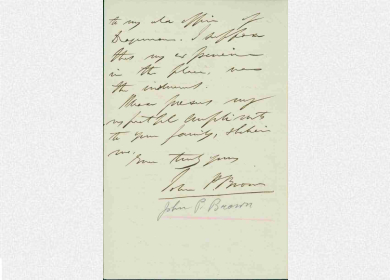 to my old office of
Dragoman. I suppose
that my experience
in the place, was
the inducement.
Please present my
respectful compliments
to your family, & believe
me.
Yours truly yours
John P. Brown
John P. Brown